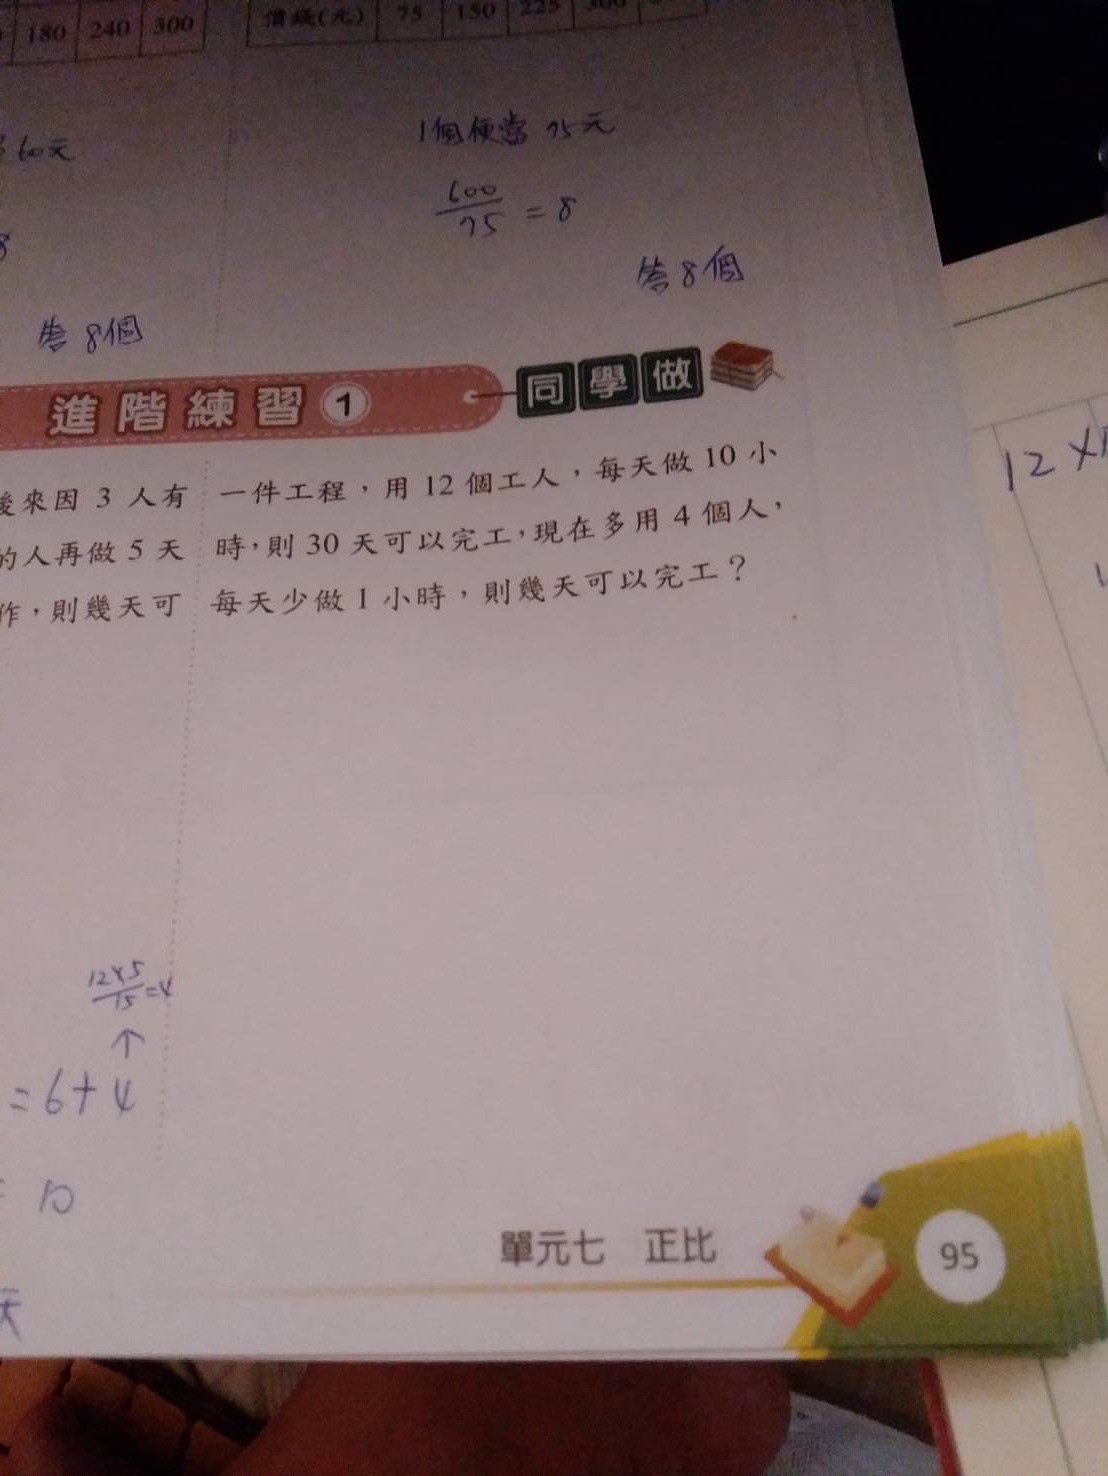 180 240 300
價錢(元) 75 150 225 300
60元
1個便當 75元
600/75 = 8
答 8個
答 8個
進階練習 1
同學做
後來因 3 人有
的人再做 5 天
作，則幾天可
一件工程，用 12 個工人，每天做 10 小
時，則 30 天可以完工，現在多用 4 個人，
每天少做 1 小時，則幾天可以完工？
12×
12×5/15=4
↑
=6+4
10
天
單元七 正比
95